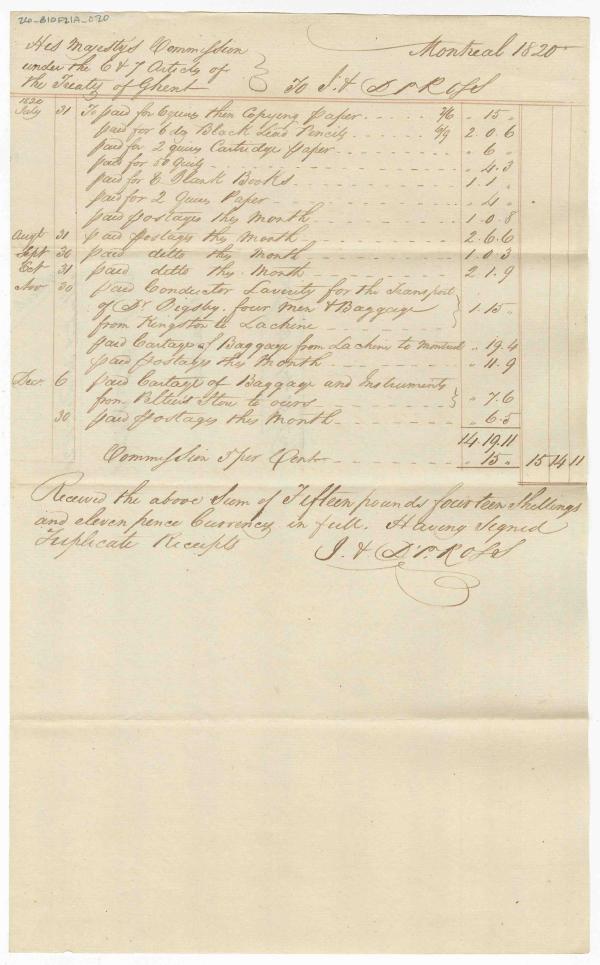 26_B10F21A_020
His Majesty's Commission
under the 6 & 7 Article of
the Treaty of Ghent
Montreal 1820
To J. & D Ross
1820
July 31 To paid for 6 quires thin Copying Paper 2/6 " 15 "
paid for 6 dz Black Lead Pencils 6/9 2. 0. 6
paid for 2 quires Cartridge Paper " 6 "
paid for 50 Quills " 4. 3
paid for 8 Blank Books 1. 1 "
paid for 2 Quires Paper " 4 "
paid postages this month 1. 0. 8
Augt 31 paid Postages this Month 2. 6. 6
Sept 30 paid ditto this month 1. 0. 3
Oct 31 paid ditto this Month 2. 1. 9
Nov 30 paid Conductor for the Transport
of Dr Bigsby, four Men & Baggage
from Kingston to Lachine 1. 15 "
paid Cartage of Baggage from Lachine to Montreal " 19. 4
paid postages this Month " 11. 9
Decr 6 paid Cartage of Baggage and Instruments
from Store to ours " 7. 6
30 paid postages this Month " 6. 5
14. 19. 11
Commission 5 per Cent " 15 " 15 14 11
Received the above Sum of Fifteen pounds fourteen Shillings
and eleven pence Currency in full. Having Signed
Triplicate Receipts
J. & D Ross